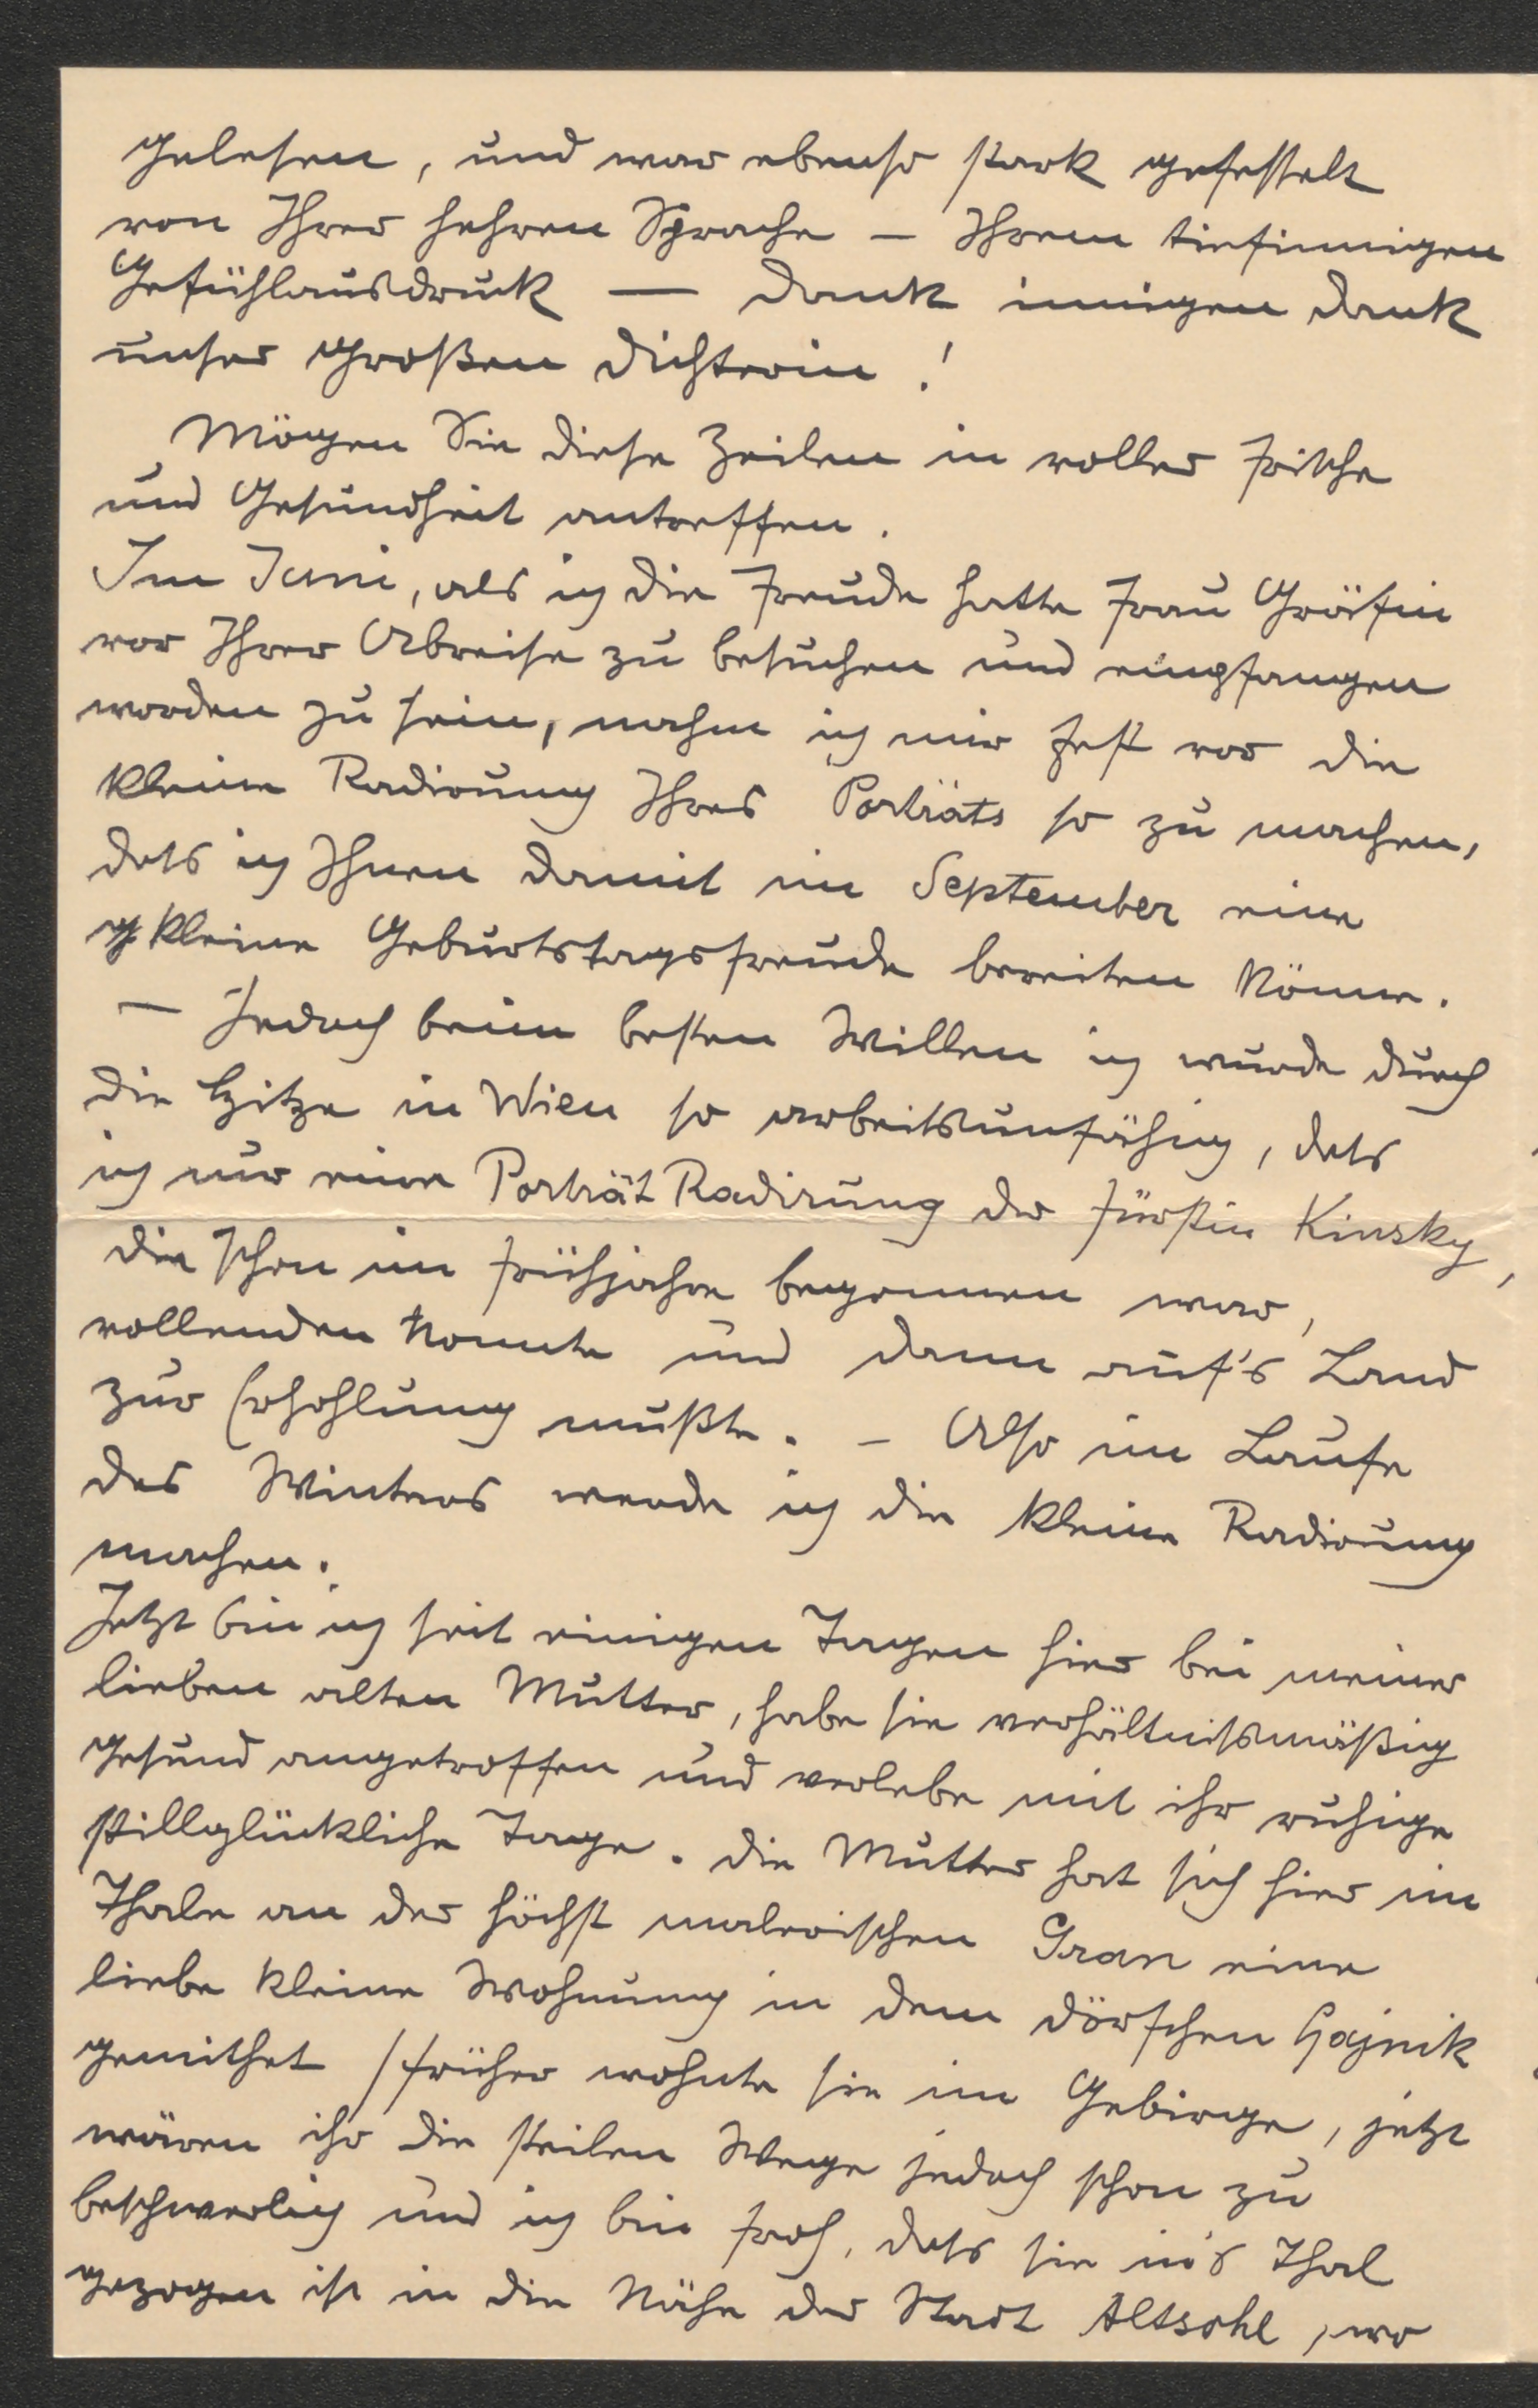 gelesen, und war ebenso stark gefesselt
von Ihrer hehren Sprache – Ihrem tiefinnigen
Gefühlausdruck — Dank innigen Dank
unser großen Dichterin!
Mögen Sie diese Zeilen in voller Frische
und Gesundheit antreffen.
Im Juni, als ich die Freude hatte Frau Gräfin
vor Ihrer Abreise zu besuchen und empfangen
worden zu sein, nahm ich mir fest vor die
kleine Radirung Ihres Porträts so zu machen,
dass ich Ihnen damit im September eine
kleine Geburtstagsfreude bereiten könne.
– Jedoch beim besten Willen ich wurde durch
die Hitze in Wien so arbeitsunfähig, dass
ich nur eine Porträt Radirung der Fürstin Kinsky,
die schon im Frühjahre begonnen war,
vollenden konnte und dann auf's Land
zur Erhohlung mußte. – Also im Laufe
des Winters werde ich die kleine Radirung
machen.
Jetzt bin ich seit einigen Tagen hier bei meiner
lieben alten Mutter, habe sie verhältnissmäßig
gesund angetroffen und verlebe mit ihr ruhige
stillglückliche Tage. Die Mutter hat sich hier im
Thale an der höchst malerischen Gran eine
liebe kleine Wohnung in dem Dörfchen Hajnik
gemithet / früher wohnte sie im Gebirge, jetzt
wären ihr die steilen Wege jedoch schon zu
beschwerlich und ich bin froh, dass sie in's Thal
gezogen ist in die Nähe der Stadt Altsohl, wo